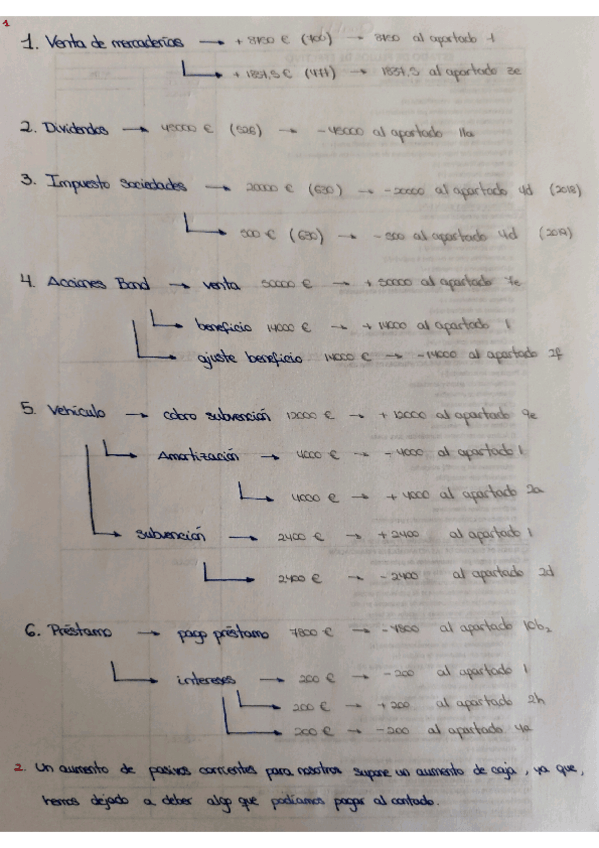 1
1. Venta de mercaderías → + 8750 € (700) → 8750 al apartado 1
→ + 1837,5 € (477) → 1837,5 al apartado 3e
2. Dividendos → 45000 € (526) → - 45000 al apartado 11a
3. Impuesto Sociedades → 20000 € (630) → - 20000 al apartado 4d (2018)
→ 500 € (630) → - 500 al apartado 4d (2019)
4. Acciones Bond → venta 50000 € → + 50000 al apartado 7e
→ beneficio 14000 € → + 14000 al apartado 1
→ ajuste beneficio 14000 € → - 14000 al apartado 2f
5. Vehículo → cobro subvención 12000 € → + 12000 al apartado 9e
→ Amortización → 4000 € → - 4000 al apartado 1
→ 4000 € → + 4000 al apartado 2a
→ subvención → 2400 € → + 2400 al apartado 1
→ 2400 € → - 2400 al apartado 2d
6. Préstamo → pago préstamo 7800 € → - 7800 al apartado 10b₂
→ intereses → 200 € → - 200 al apartado 1
→ 200 € → + 200 al apartado 2h
→ 200 € → - 200 al apartado 4a
2. Un aumento de pasivos corrientes para nosotros supone un aumento de caja, ya que,
hemos dejado a deber algo que podíamos pagar al contado.